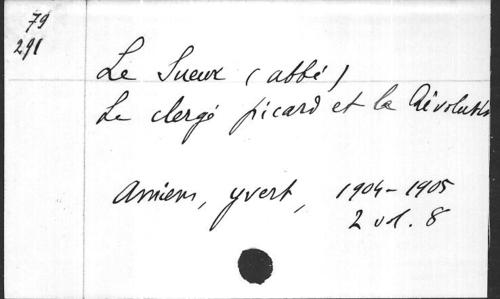 79
291
Le Sueur (abbé)
Le clergé picard et la Révolution
Amiens, yvert, 1904-1905
2 vol. 8